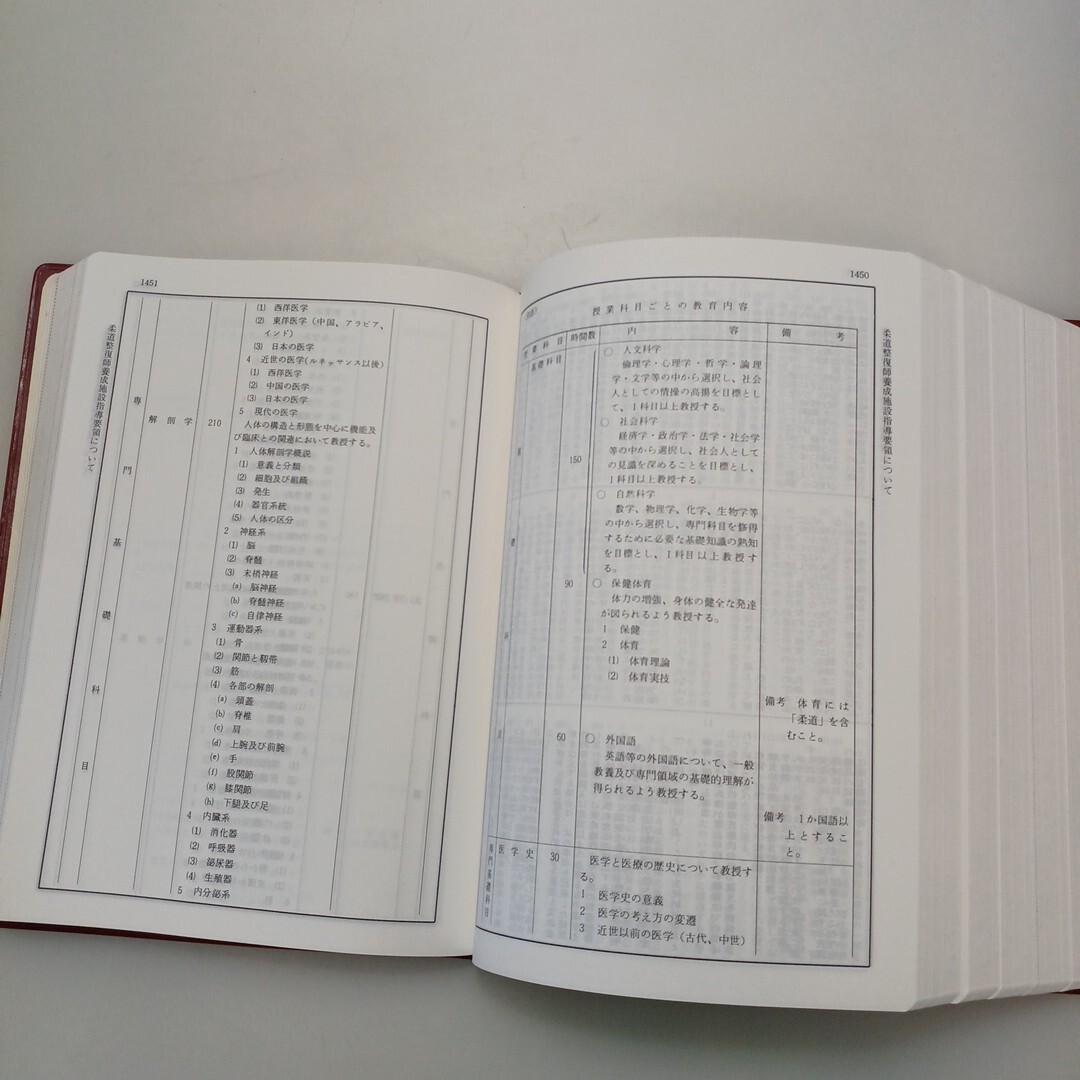 1450
柔道整復師養成施設指導要領について
授業科目ごとの教育内容
授業科目
時間数
内容
備考
基礎科目
150
○ 人文科学
倫理学・心理学・哲学・論理
学・文学等の中から選択し、社会
人としての情操の高揚を目標とし
て、1科目以上教授する。
○ 社会科学
経済学・政治学・法学・社会学
等の中から選択し、社会人として
の見識を深めることを目標とし、
1科目以上教授する。
○ 自然科学
数学、物理学、化学、生物学等
の中から選択し、専門科目を修得
するために必要な基礎知識の熟知
を目標とし、1科目以上教授す
る。
90
○ 保健体育
体力の増強、身体の健全な発達
が図られるよう教授する。
1 保健
2 体育
(1) 体育理論
(2) 体育実技
備考 体育には
「柔道」を含
むこと。
60
○ 外国語
英語等の外国語について、一般
教養及び専門領域の基礎的理解が
得られるよう教授する。
備考 1か国語以
上とするこ
と。
専門基礎科目
医学史
30
医学と医療の歴史について教授す
る。
1 医学史の意義
2 医学の考え方の変遷
3 近世以前の医学（古代、中世）
1451
柔道整復師養成施設指導要領について
専門基礎科目
(1) 西洋医学
(2) 東洋医学（中国、アラビア、
インド）
(3) 日本の医学
4 近世の医学(ルネッサンス以後)
(1) 西洋医学
(2) 中国の医学
(3) 日本の医学
5 現代の医学
解剖学
210
人体の構造と形態を中心に機能及
び臨床との関連において教授する。
1 人体解剖学概説
(1) 意義と分類
(2) 細胞及び組織
(3) 発生
(4) 器官系統
(5) 人体の区分
2 神経系
(1) 脳
(2) 脊髄
(3) 末梢神経
(a) 脳神経
(b) 脊髄神経
(c) 自律神経
3 運動器系
(1) 骨
(2) 関節と靭帯
(3) 筋
(4) 各部の解剖
(a) 頭蓋
(b) 脊椎
(c) 肩
(d) 上腕及び前腕
(e) 手
(f) 股関節
(g) 膝関節
(h) 下腿及び足
4 内臓系
(1) 消化器
(2) 呼吸器
(3) 泌尿器
(4) 生殖器
5 内分泌系